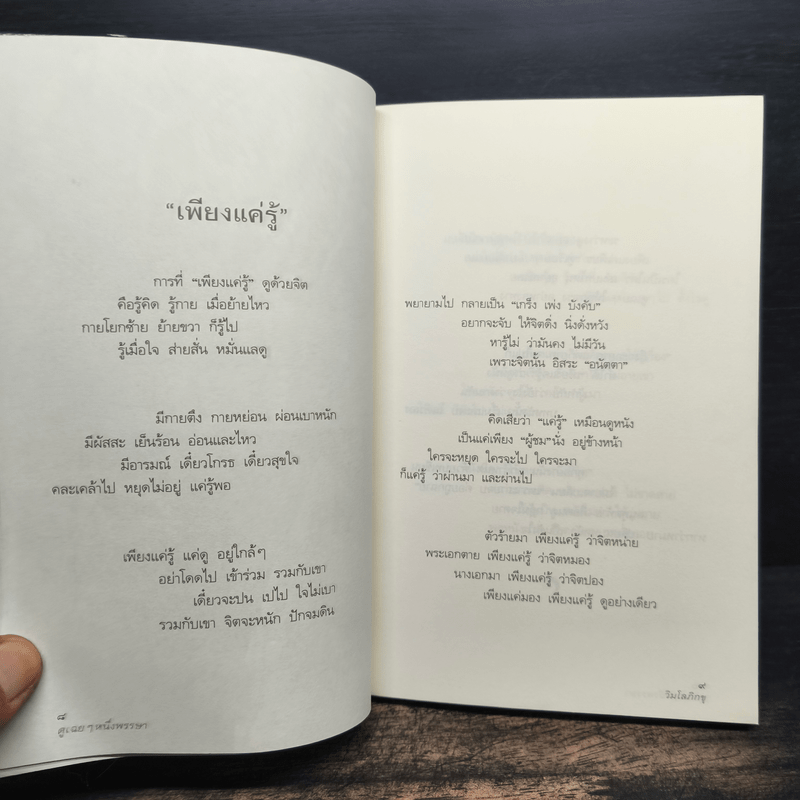 “เพียงแค่รู้”
การที่ “เพียงแค่รู้” ดูด้วยจิต
คือรู้คิด รู้กาย เมื่อย้ายไหว
กายโยกซ้าย ย้ายขวา ก็รู้ไป
รู้เมื่อใจ ส่ายสั่น หมั่นแลดู
มีกายตึง กายหย่อน ผ่อนเบาหนัก
มีผัสสะ เย็นร้อน อ่อนและไหว
มีอารมณ์ เดี๋ยวโกรธ เดี๋ยวสุขใจ
คละเคล้าไป หยุดไม่อยู่ แค่รู้พอ
เพียงแค่รู้ แค่ดู อยู่ใกล้ๆ
อย่าโดดไป เข้าร่วม รวมกับเขา
เดี๋ยวจะปน เปไป ใจไม่เบา
รวมกับเขา จิตจะหนัก ปักจมตีน
๘
ดูเฉยๆ หนึ่งพรรษา
พยายามไป กลายเป็น “เกร็ง เพ่ง บังคับ”
อยากจะจับ ให้จิตดิ่ง นิ่งดั่งหวัง
หารู้ไม่ ว่ามันคง ไม่มีวัน
เพราะจิตนั้น อิสระ “อนัตตา”
คิดเสียว่า “แค่รู้” เหมือนดูหนัง
เป็นแค่เพียง “ผู้ชม”นั่ง อยู่ข้างหน้า
ใครจะหยุด ใครจะไป ใครจะมา
ก็แค่รู้ ว่าผ่านมา และผ่านไป
ตัวร้ายมา เพียงแค่รู้ ว่าจิตหน่าย
พระเอกตาย เพียงแค่รู้ ว่าจิตหมอง
นางเอกมา เพียงแค่รู้ ว่าจิตปอง
เพียงแค่มอง เพียงแค่รู้ ดูอย่างเดียว
๙
วิมโลภิกขุ